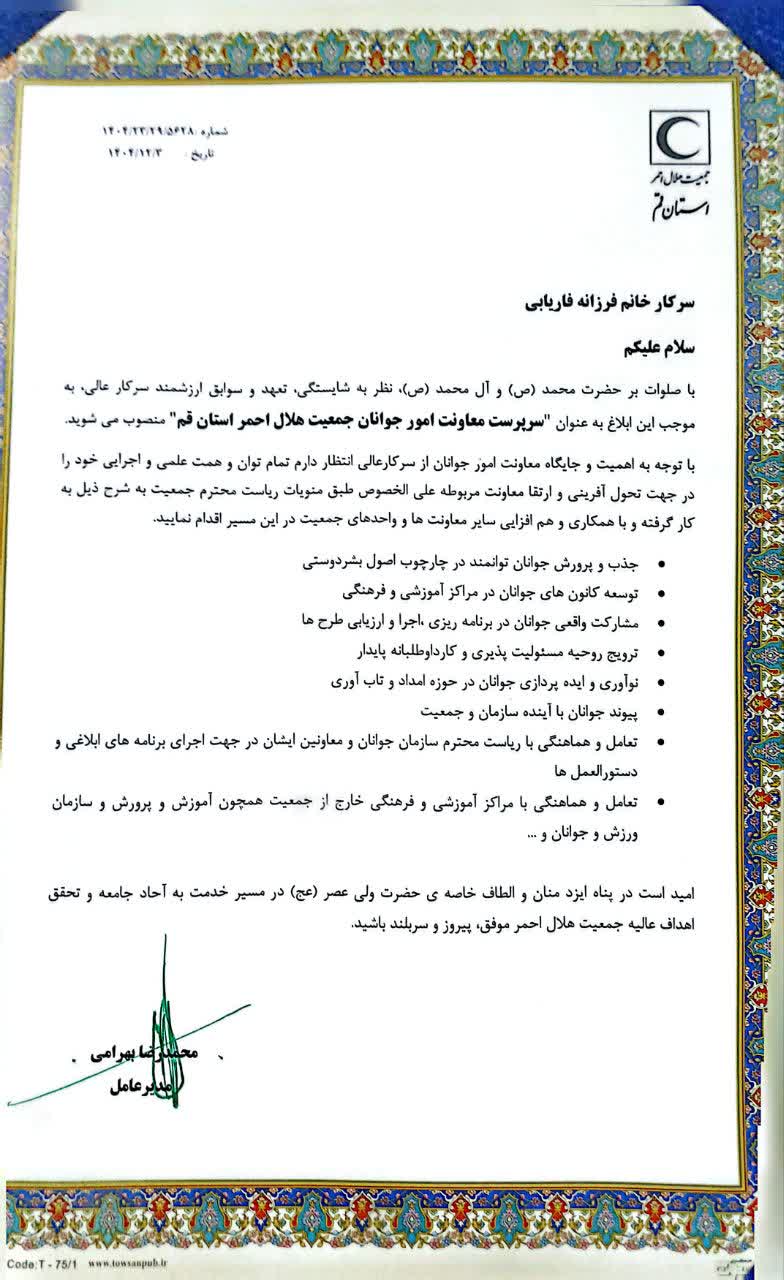 شماره :۱۴۰۴/۲۳/۲۹/۵۶۲۸
تاریخ : ۱۴۰۴/۱۲/۳
جمعیت هلال احمر
استان قم
سرکار خانم فرزانه فاریابی
سلام علیکم
با صلوات بر حضرت محمد (ص) و آل محمد (ص)، نظر به شایستگی، تعهد و سوابق ارزشمند سرکار عالی، به
موجب این ابلاغ به عنوان "سرپرست معاونت امور جوانان جمعیت هلال احمر استان قم" منصوب می شوید.
با توجه به اهمیت و جایگاه معاونت امور جوانان از سرکارعالی انتظار دارم تمام توان و همت علمی و اجرایی خود را
در جهت تحول آفرینی و ارتقا معاونت مربوطه علی الخصوص طبق منویات ریاست محترم جمعیت به شرح ذیل به
کار گرفته و با همکاری و هم افزایی سایر معاونت ها و واحدهای جمعیت در این مسیر اقدام نمایید.
• جذب و پرورش جوانان توانمند در چارچوب اصول بشردوستی
• توسعه کانون های جوانان در مراکز آموزشی و فرهنگی
• مشارکت واقعی جوانان در برنامه ریزی ،اجرا و ارزیابی طرح ها
• ترویج روحیه مسئولیت پذیری و کارداوطلبانه پایدار
• نوآوری و ایده پردازی جوانان در حوزه امداد و تاب آوری
• پیوند جوانان با آینده سازمان و جمعیت
• تعامل و هماهنگی با ریاست محترم سازمان جوانان و معاونین ایشان در جهت اجرای برنامه های ابلاغی و
دستورالعمل ها
• تعامل و هماهنگی با مراکز آموزشی و فرهنگی خارج از جمعیت همچون آموزش و پرورش و سازمان
ورزش و جوانان و ...
امید است در پناه ایزد منان و الطاف خاصه ی حضرت ولی عصر (عج) در مسیر خدمت به آحاد جامعه و تحقق
اهداف عالیه جمعیت هلال احمر موفق، پیروز و سربلند باشید.
محمدرضا بهرامی
مدیرعامل
Code:T - 75/1 www.towsanpub.ir